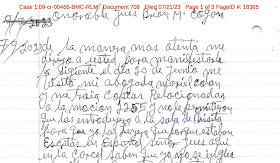 Case 1:09-cr-00466-BMC-RLM Document 708 Filed 07/21/23 Page 1 of 3 PageID #: 18365
Honorable Jues Brian M. Cogan
de la manera mas atenta me
dirijo a usted para manifestarle
lo siguiente el dia 20 de Junio me
visito mi abogada mariel colon
y me traia cartas relacionadas
a la mocion 2255 y no le permitieron
que las introdujera a la sala de visita
para que yo las leyera porque estaban
Escritas en Español señor Jues aqui
en la carcel saben que yo no se ingles